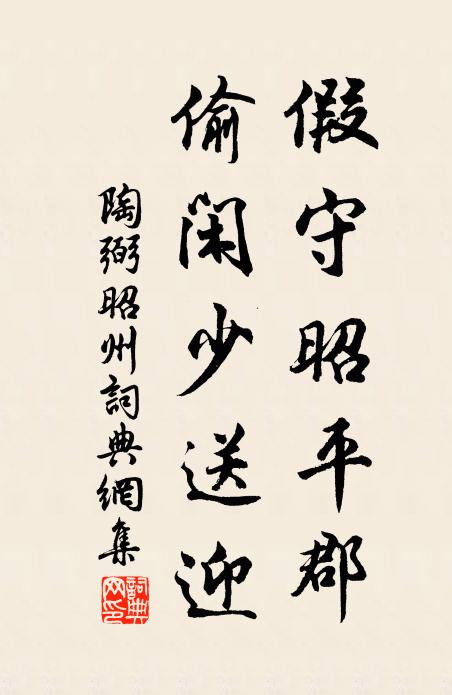 假守昭平郡
偷闲少送迎
陶弼昭州詞典網集
詞典网印